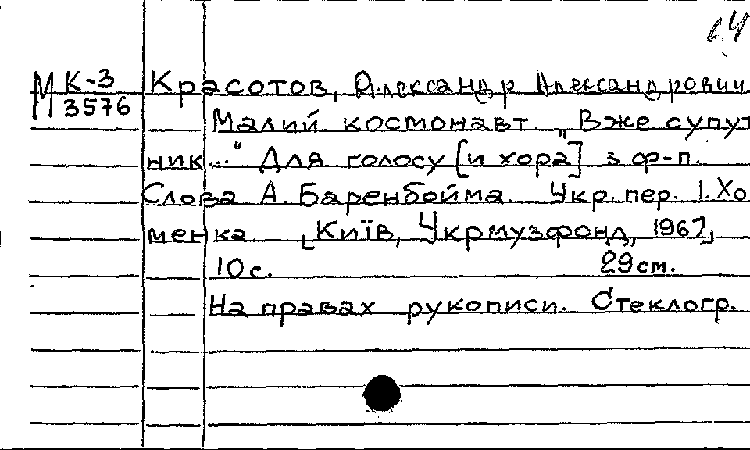 64
М К-3
3576
Красотов, Александр Александрович
Малий космонавт „Вже супут
ник..." Для голосу [и хора] з ф-п.
Слова А. Баренбойма. Укр. пер. І. Хо
менка [Київ, Укрмузфонд, 1967]
10 с. 29 см.
На правах рукописи. Стеклогр.